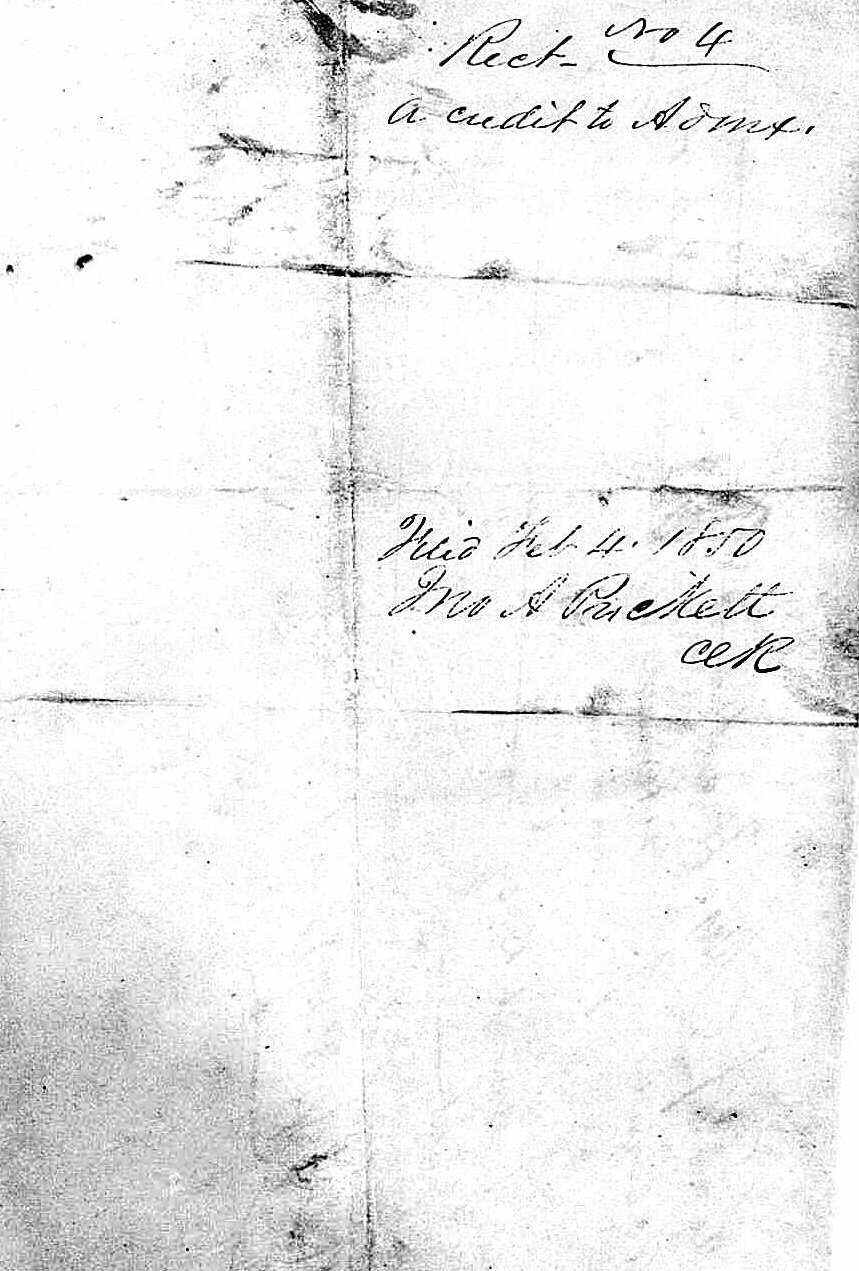 Rect- No 4
a credit to Admx.
Filed Feb 4. 1850
Jno A Prickett
Clk